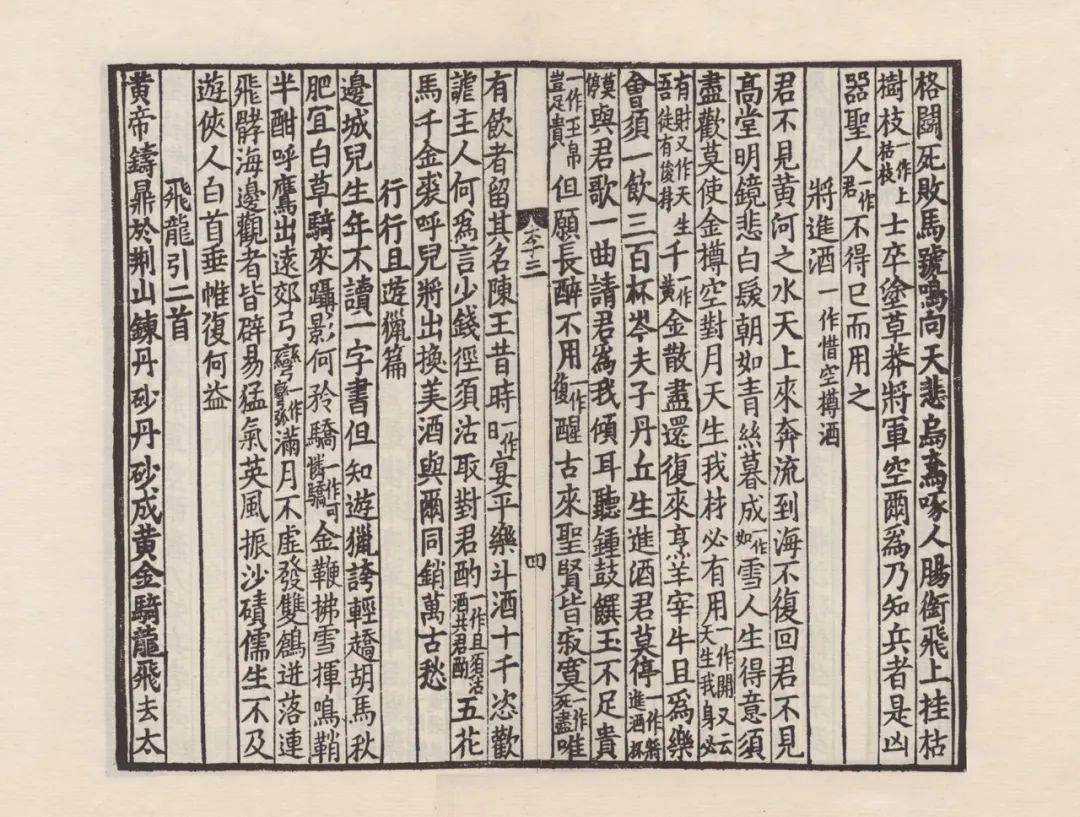 格鬭死敗馬號鳴向天悲烏鳶啄人腸銜飛上挂枯
樹枝一作上枯枝士卒塗草莽將軍空爾爲乃知兵者是凶
器聖人一作君不得已而用之
將進酒一作惜空樽酒
君不見黃河之水天上來奔流到海不復回君不見
髙堂明鏡悲白髮朝如青絲暮成一作如雪人生得意須
盡歡莫使金樽空對月天生我材必有用一作開又云天生我身必
有財又作天生吾徒有俊材千一作黃金散盡還復來烹羊宰牛且爲樂
會須一飲三百杯岑夫子丹丘生進酒君莫停一作將進酒杯
莫停與君歌一曲請君爲我傾耳聽鍾鼓饌玉不足貴
一作玉帛豈足貴但願長醉不用一作復醒古來聖賢皆寂寞一作死盡唯
李三
四
有飲者留其名陳王昔時一作日宴平樂斗酒十千恣歡
謔主人何爲言少錢徑須沽取對君酌一作且須沽酒共君酌五花
馬千金裘呼兒將出換美酒與爾同銷萬古愁
行行且遊獵篇
邊城兒生年不讀一字書但知遊獵誇輕趫胡馬秋
肥宜白草騎來躡影何矜驕一作可憐驕金鞭拂雪揮鳴鞘
半酣呼鷹出遠郊弓彎一作彎弧滿月不虛發雙鶬迸落連
飛髇海邊觀者皆辟易猛氣英風振沙磧儒生不及
遊俠人白首垂帷復何益
飛龍引二首
黃帝鑄鼎於荆山鍊丹砂丹砂成黃金騎龍飛去太